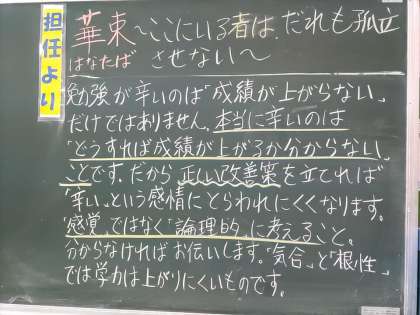 担任より
華束～ここにいる者は、だれも孤立
はなたば させない～
勉強が辛いのは「成績が上がらない」
だけではありません。本当に辛いのは
「どうすれば成績が上がるか分からない」
ことです。だから正しい改善策を立てれば
「辛い」という感情にとらわれにくくなります。
「感覚」ではなく「論理的」に考えること。
分からなければお伝えします。「気合」と「根性」
では学力は上がりにくいものです。